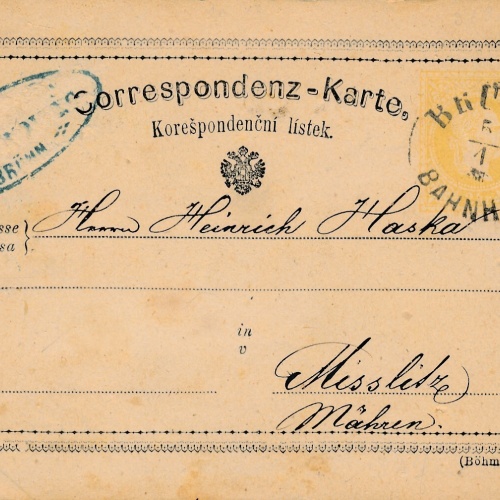 Correspondenz-Karte,
Korešpondenční lístek.
BRÜNN
BRÜ
5
1
BAHNH
Herrn Heinrich Haska
sse
sa
in
v
Misslitz
Mähren.
(Böhm